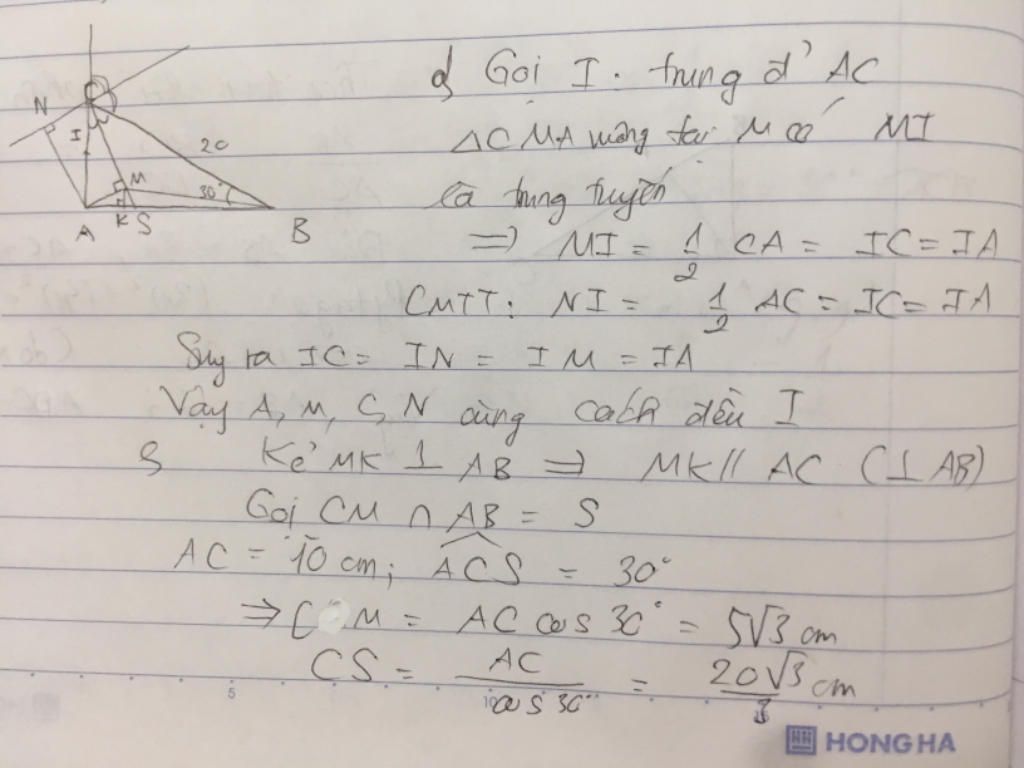 N
C
I
20
M
30°
A
K S
B
d) Gọi I : trung đ' AC
ΔCMA vuông tại M có MI
là trung tuyến
=> MI = 1/2 CA = IC = IA
CMTT: NI = 1/2 AC = IC = IA
Suy ra IC = IN = IM = IA
Vậy A, M, C, N cùng cách đều I
Kẻ MK ⊥ AB => MK // AC (⊥ AB)
Gọi CM ∩ AB = S
AC = 10 cm; ∠ACS = 30°
=> CM = AC cos 30° = 5√3 cm
CS = AC / cos 30° = 20√3 / 3 cm
5 10
HONG HA